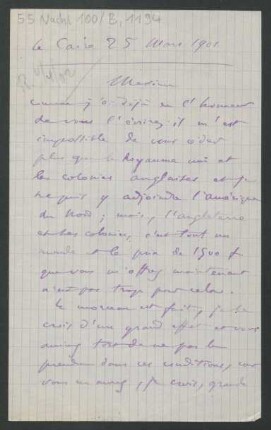 55 Nachl 100/B, 1194
le Caire 25 Mars 1901
Monsieur
comme j'ai déjà eu l'honneur
de vous l'écrire, il m'est
impossible de vous céder
plus que le Royaume uni et
les colonies anglaises et je
ne puis y adjoindre l'amérique
du Nord; mais, l'angleterre
et les colonies, c'est tout un
monde et le prix de 1500 f
que vous m'offrez maintenant
n'est pas trop pour cela.
le morceau est fait, je le
crois d'un grand effet et vous
auriez tort de ne pas le
prendre dans ces conditions, car
vous en aurez, je crois, grande